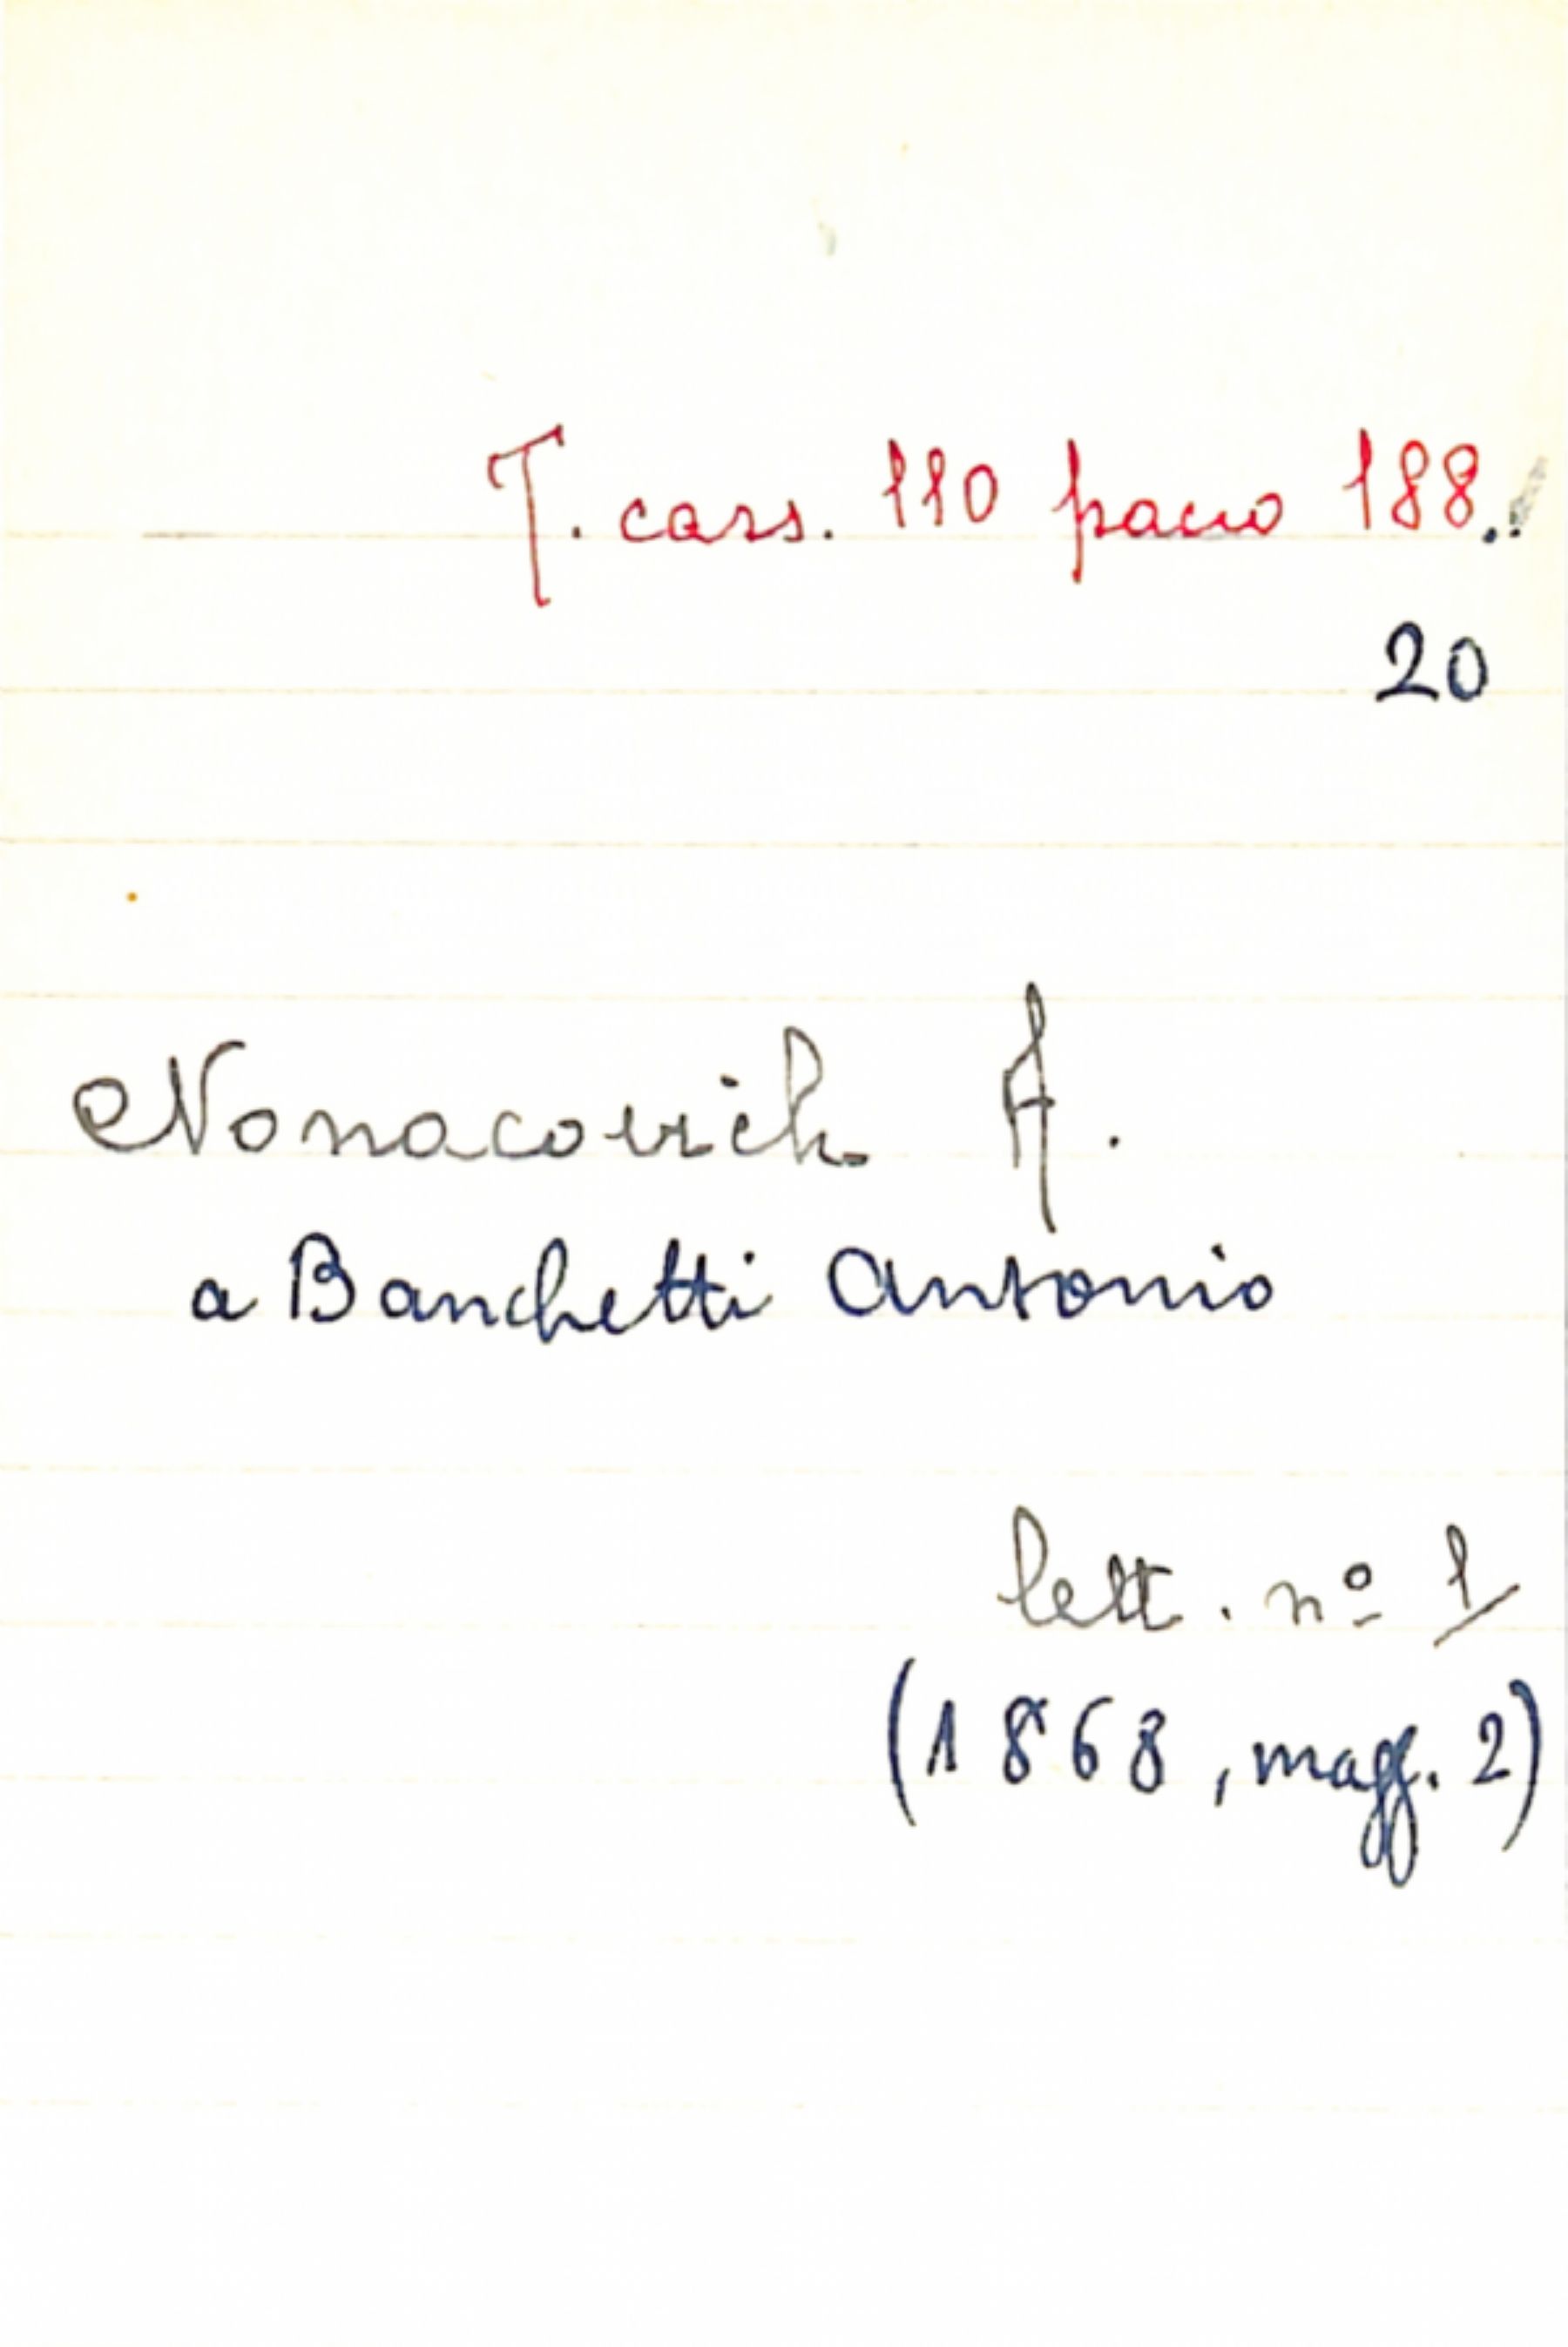 T. cass. 110 pacco 188.
20
Nonacovich A.
a Banchetti Antonio
lett. nº 1
(1868, magg. 2)